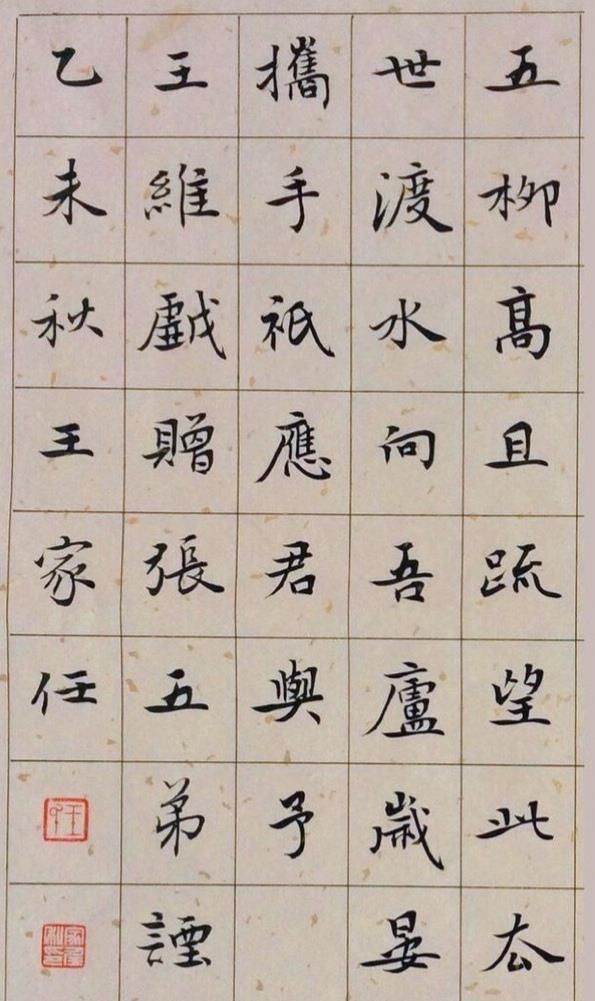 五柳高且䟽望此厺
世渡水向吾廬歲晏
攜手祇應君與予
王維戱贈張五弟諲
乙未秋王家任